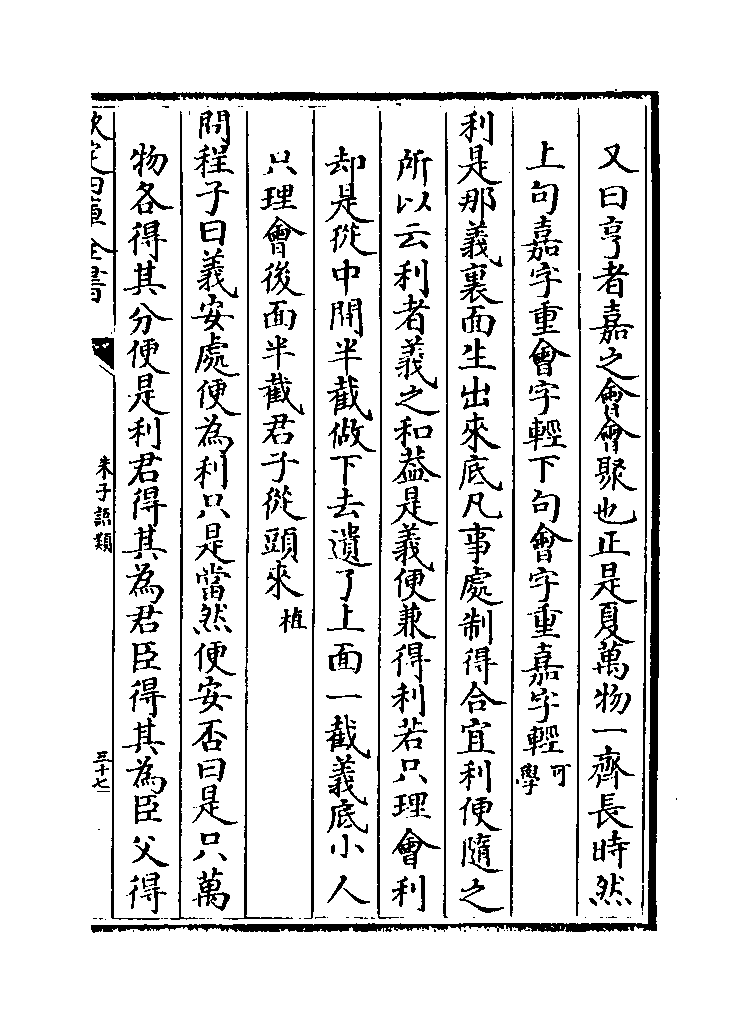 又曰亨者嘉之會會聚也正是夏萬物一齊長時然
上句嘉字重會字輕下句會字重嘉字輕可學
利是那義裏面生出來底凡事處制得合宜利便隨之
所以云利者義之和葢是義便兼得利若只理會利
却是從中間半截做下去遺了上面一截義底小人
只理會後面半截君子從頭來植
問程子曰義安處便為利只是當然便安否曰是只萬
物各得其分便是利君得其為君臣得其為臣父得
欽定四庫全書
朱子語類
五十七